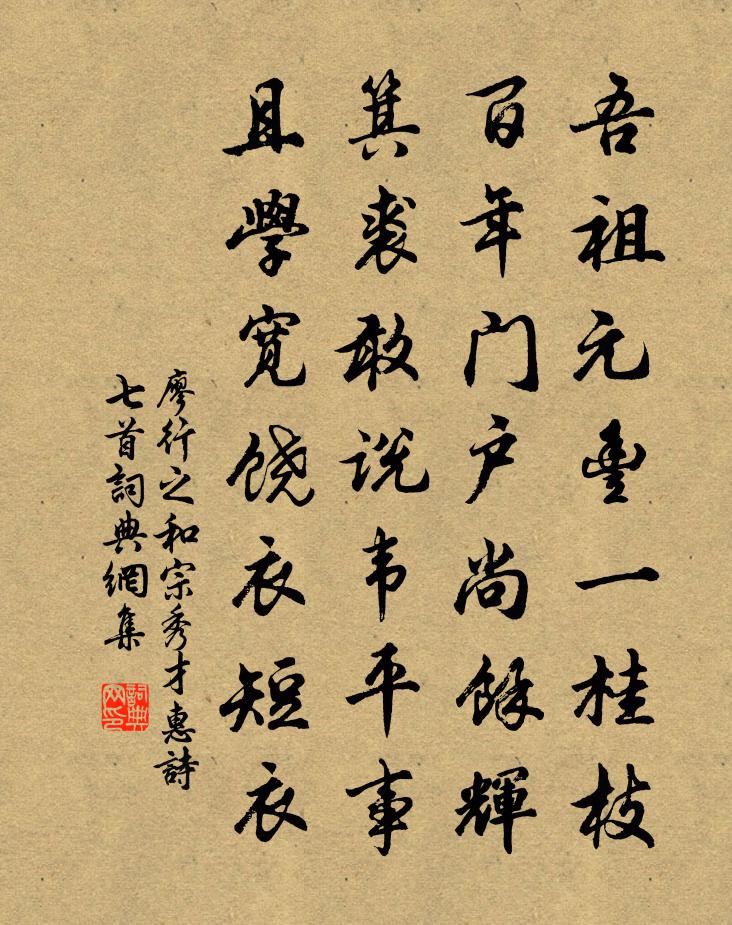 吾祖元豐一桂枝
百年门户尚餘輝
箕裘敢说韦平事
且學寬饶衣短衣
廖行之和宗秀才惠詩
七首詞典網集
詞典网印